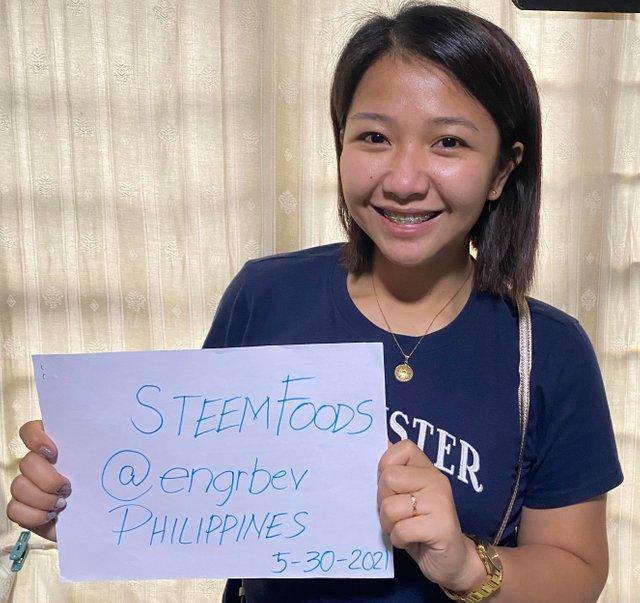 STEEMFOODS
@engrbev
PHILIPPINES
5-30-2021